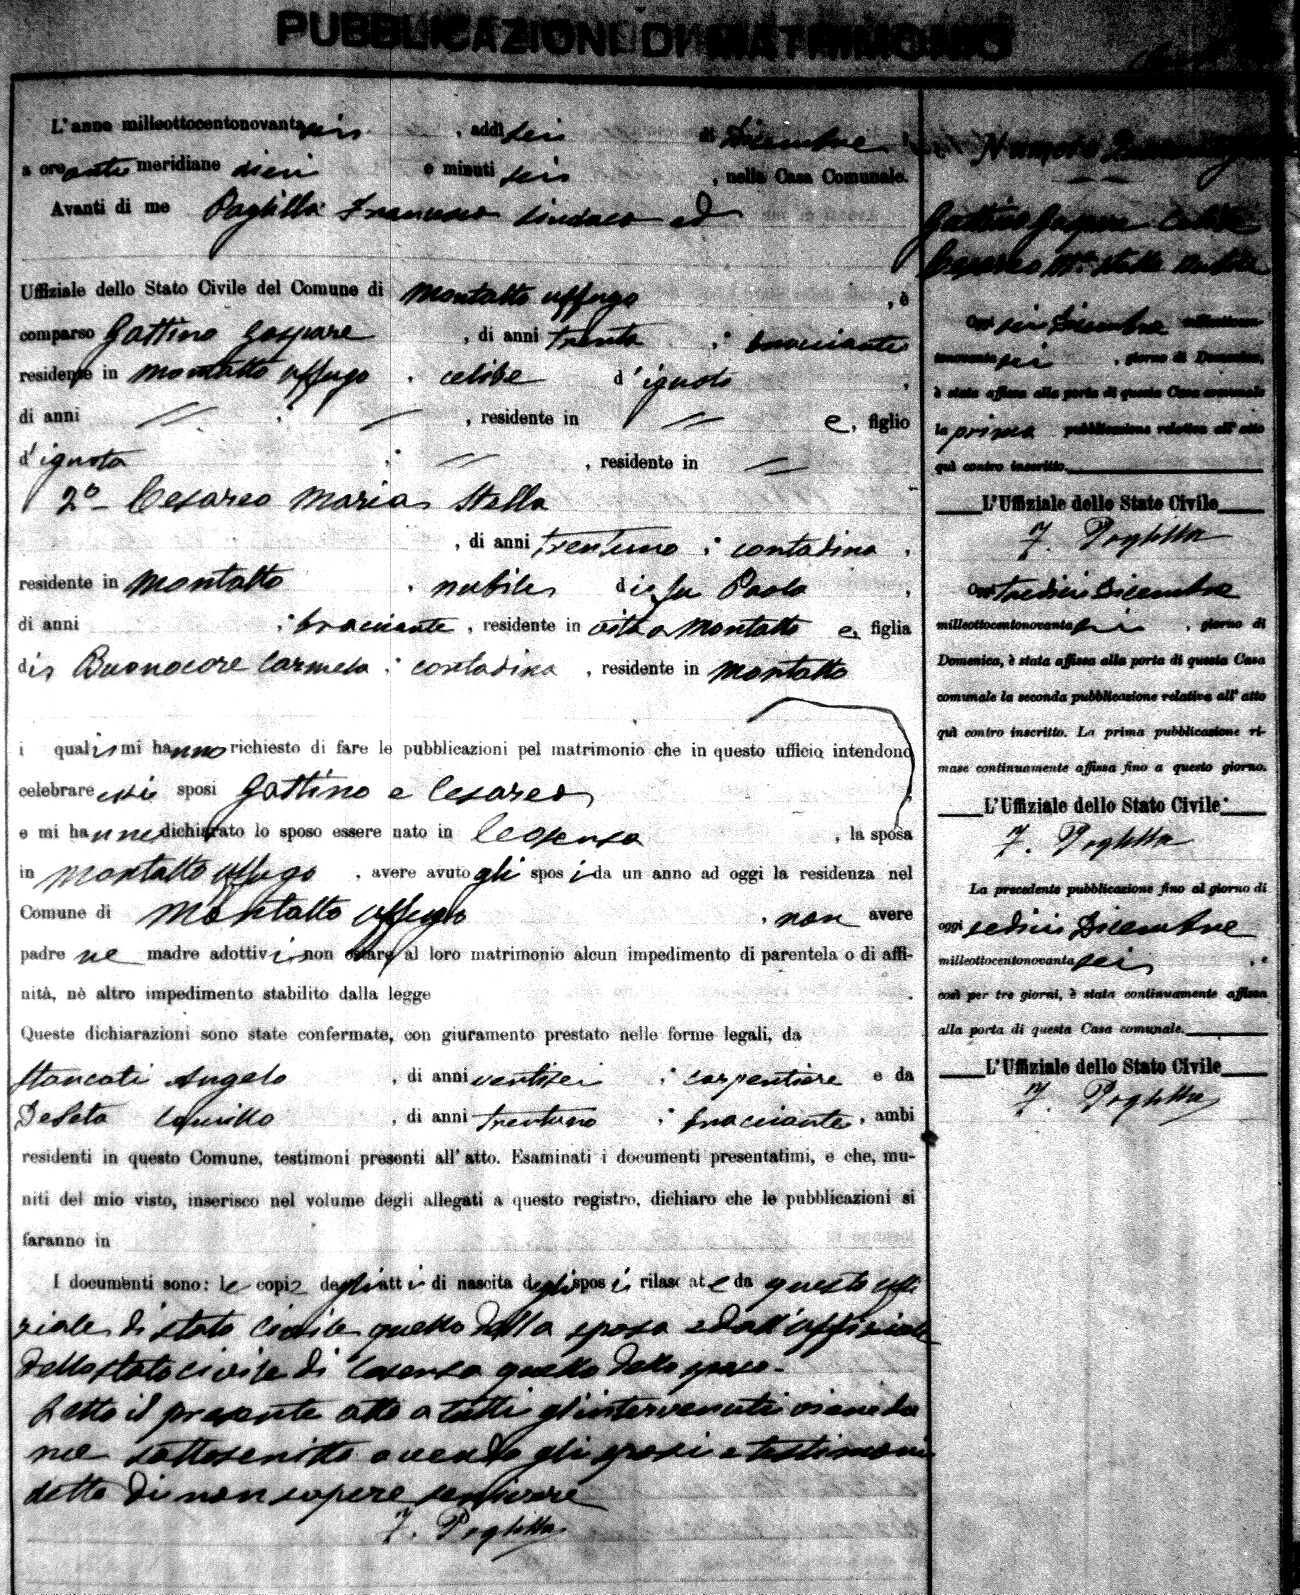 PUBBLICAZIONI DI MATRIMONIO
L'anno milleottocentonovantasei, addì sei di Dicembre
a ore anti meridiane dieci e minuti sei, nella Casa Comunale.
Avanti di me Francesco Sindaco ed
Uffiziale dello Stato Civile del Comune di Montalto Uffugo, è
comparso Gattino Gaspare, di anni trenta; bracciante
residente in Montalto Uffugo, celibe d'ignoto,
di anni // ; /, residente in // e, figlio
d'ignota ; //, residente in //
2º- Cesareo Maria Stella
, di anni trentuno; contadina,
residente in Montalto, nubile di fu Paolo,
di anni ; bracciante, residente in vita Montalto e, figlia
di Buonocore Carmela; contadina, residente in Montalto
i quali mi hanno richiesto di fare le pubblicazioni pel matrimonio che in questo ufficio intendono
celebrare essi sposi Gattino e Cesareo
e mi hanno dichiarato lo sposo essere nato in Cosenza, la sposa
in Montalto Uffugo, avere avuto gli sposi da un anno ad oggi la residenza nel
Comune di Montalto Uffugo, non avere
padre ne madre adottivi non ostare al loro matrimonio alcun impedimento di parentela o di affi-
nità, nè altro impedimento stabilito dalla legge.
Queste dichiarazioni sono state confermate, con giuramento prestato nelle forme legali, da
Stancati Angelo, di anni ventisei; carpentiere e da
DeSeta Camillo, di anni trentuno; bracciante, ambi
residenti in questo Comune, testimoni presenti all'atto. Esaminati i documenti presentatimi, e che, mu-
niti del mio visto, inserisco nel volume degli allegati a questo registro, dichiaro che le pubblicazioni si
faranno in
I documenti sono: le copie degli atti di nascita degli sposi rilasciate da questo uffi
ziale di stato civile quello della sposa e dall'uffiziale
dello stato civile di Cosenza quello dello sposo-
Letto il presente atto a tutti gl'intervenuti viene da
me sottoscritto avendo gli sposi e testimoni
detto di non sapere scrivere
F.
Numero
Gattino Gaspare celibe
Cesareo M.a Stella nubile
Oggi sei Dicembre milleottocen-
tonovantasei, giorno di Domenica,
è stata affissa alla porta di questa Casa comunale
la prima pubblicazione relativa all'atto
quì contro inscritto.
L'Uffiziale dello Stato Civile
F.
Oggi tredici Dicembre
milleottocentonovantasei, giorno di
Domenica, è stata affissa alla porta di questa Casa
comunale la seconda pubblicazione relativa all'atto
quì contro inscritto. La prima pubblicazione ri-
mase continuamente affissa fino a questo giorno.
L'Uffiziale dello Stato Civile
F.
La precedente pubblicazione fino al giorno di
oggi sedici Dicembre
milleottocentonovantasei, e
così per tre giorni, è stata continuamente affissa
alla porta di questa Casa comunale.
L'Uffiziale dello Stato Civile
F.